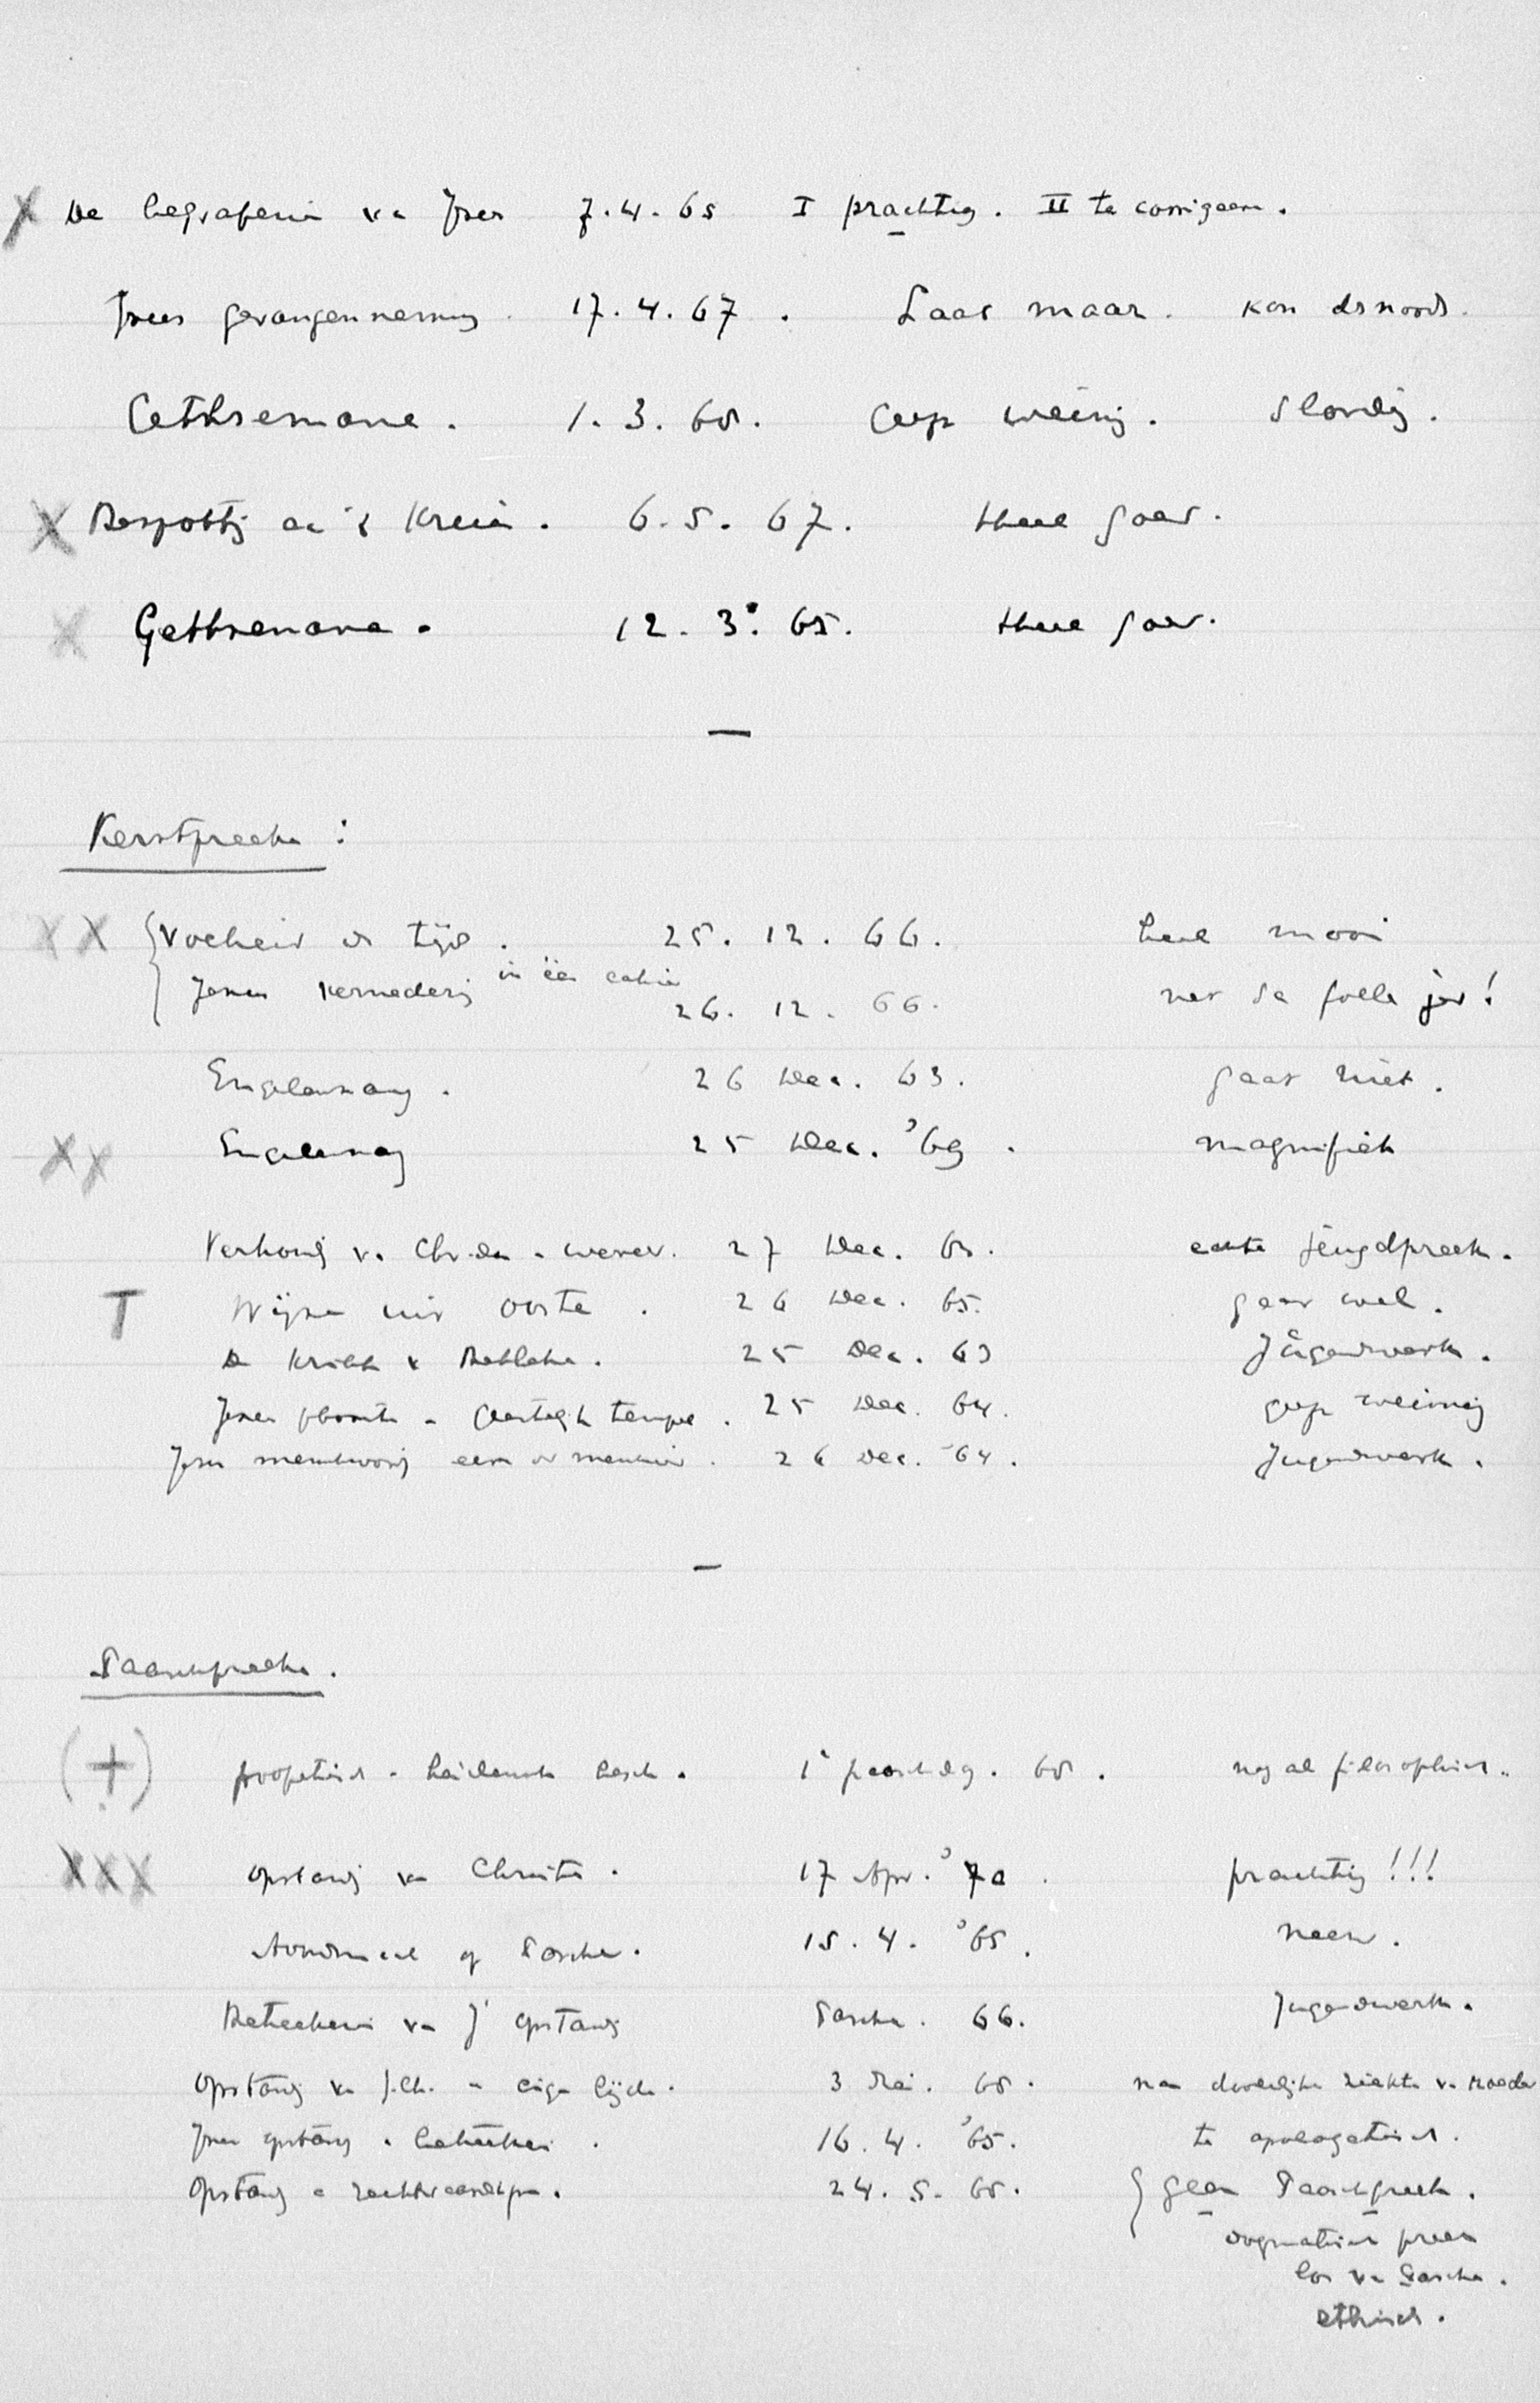 X De begrafenis va Jesus 7.4.65 I prachtig. II te corrigeeren.
Jesus gevangenneming. 17.4.67. Laat maar. kan desnoods.
Gethsemane. 1.3.68. Cup weinig. Slordig.
X Bespotting aa 't Kruis. 6.5.67. Heel goed.
X Gethsemane. 12.3.65. Heel goed.
—
Kerstpreeken:
XX Volheid der tijd. 25.12.66. heel mooi
Jesus vernedering in één cahier 26.12.66. net de goede
Engelenzang. 26 Dec. 63. gaat niet.
XX Engelenzang 25 Dec. '69. magnifiek
Verhouding v. Chr.dom - wereld. 27 Dec. 68. echte jeugdpreek.
T Wijzen uit Oosten. 26 Dec. 65. gaat wel.
De Kribbe v Bethlehem. 25 Dec. 63 Jugendwerk.
Jesus geboorte - Geestelijk tempel. 25 Dec. 64. weinig
Jesus menschwording eer der menschen. 26 Dec. 64. Jugendwerk.
—
Paaschpreeken.
(+) profetisch - heidensch besch. 1e paaschdag. 68. nog al filosophisch.
XXX Opstanding van Christus. 17 Apr. '70. prachtig!!!
Avondmaal op Paschen. 15.4.'65. neen.
Beteekenis va J' opstanding Paschen. 66. Jugendwerk.
Opstanding va J.Ch. - eigen lijden. 3 Mei. 68. na doodelijke ziekte v. Moeder
Jesus opstanding - beteekenis. 16.4.'65. te apologetisch.
Opstanding - rechtvaardiging. 24.5.68. geen Paaschpreek.
dogmatische preek
los va Paschen.
ethisch.